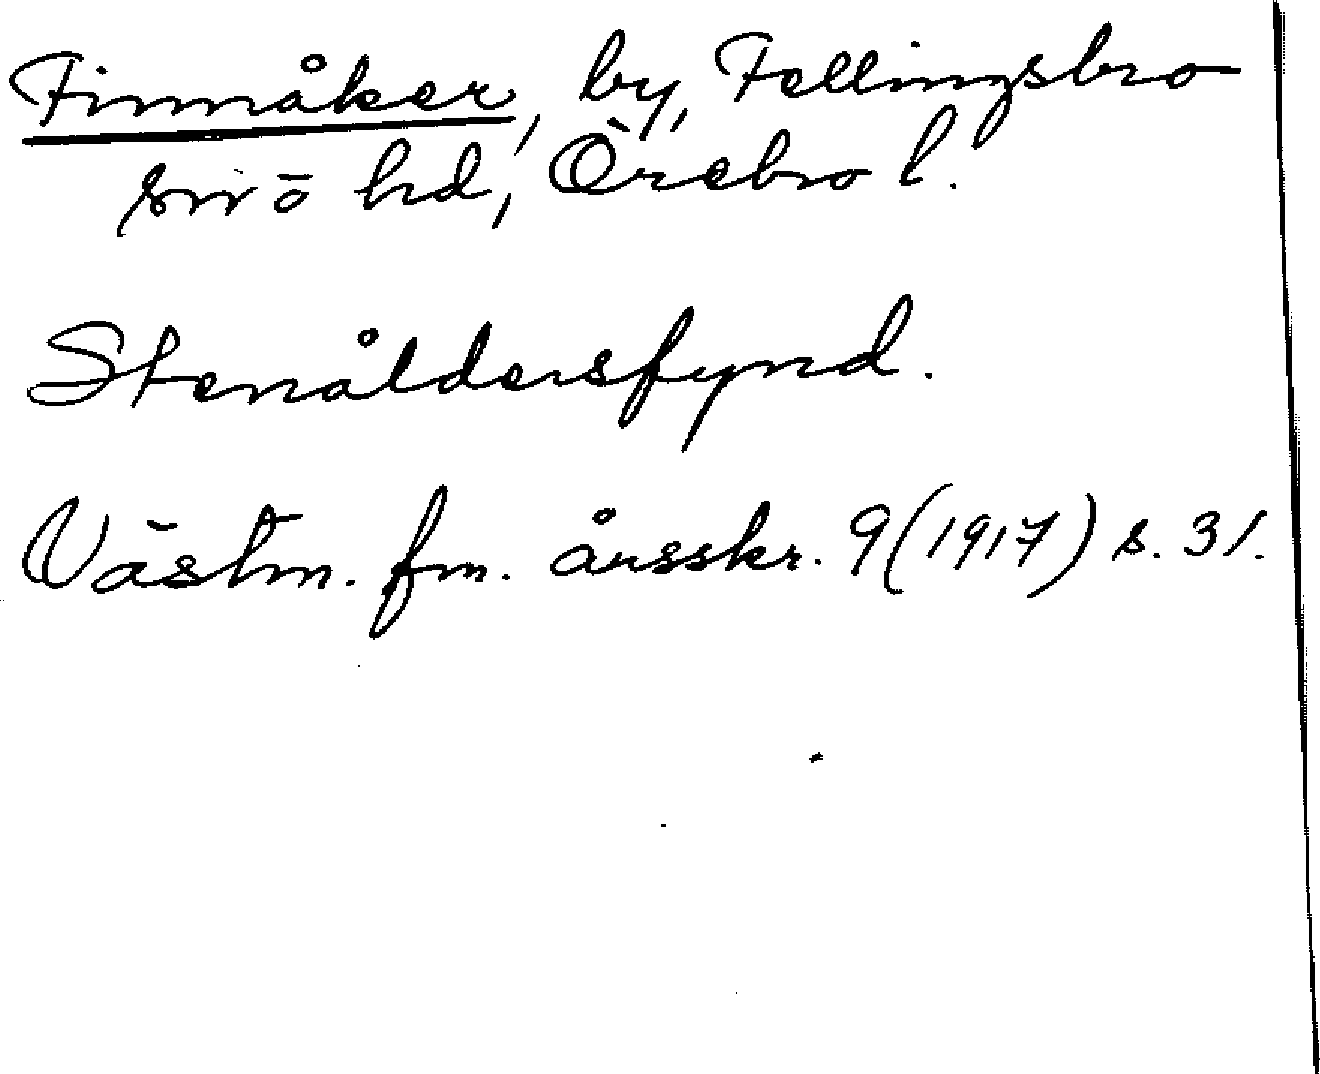 Finnåker, by, Fellingsbro
sn o hd, Örebro l.
Stenåldersfynd.
Västm. fm. årsskr. 9 (1917) s. 31.